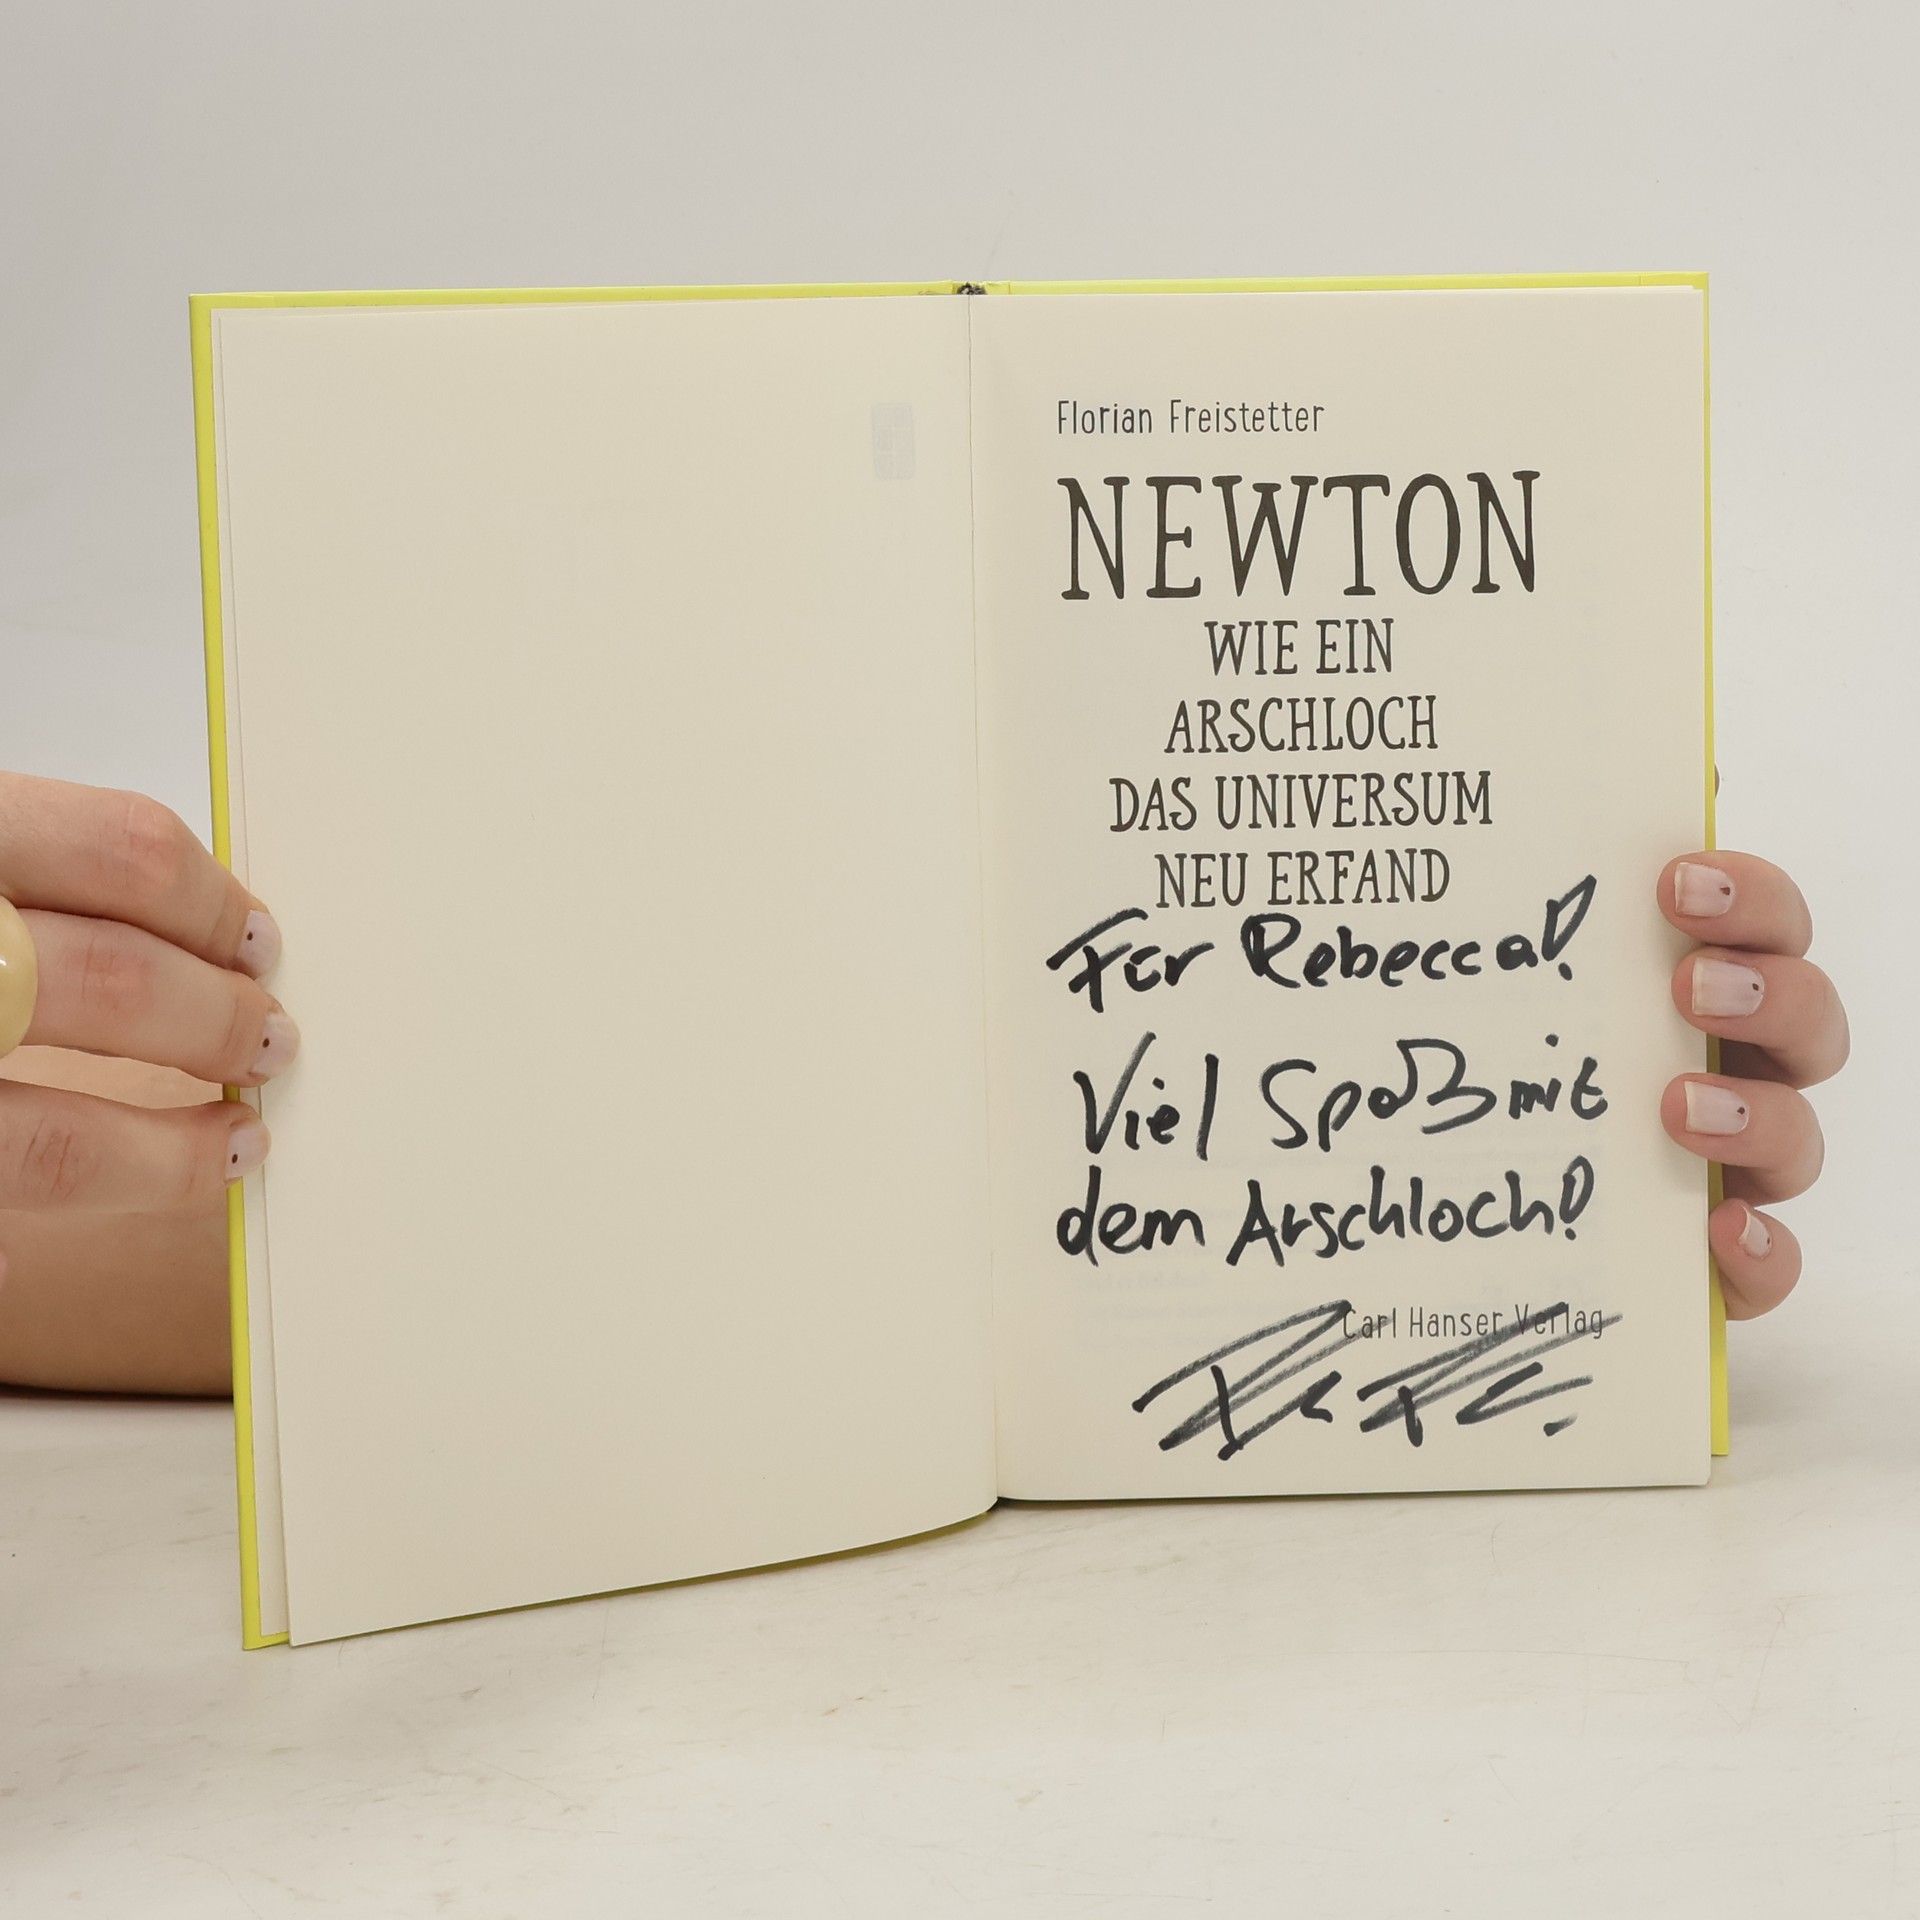 Florian Freistetter
NEWTON
WIE EIN
ARSCHLOCH
DAS UNIVERSUM
NEU ERFAND
Für Rebecca!
Viel Spaß mit
dem Arschloch!
Carl Hanser Verlag